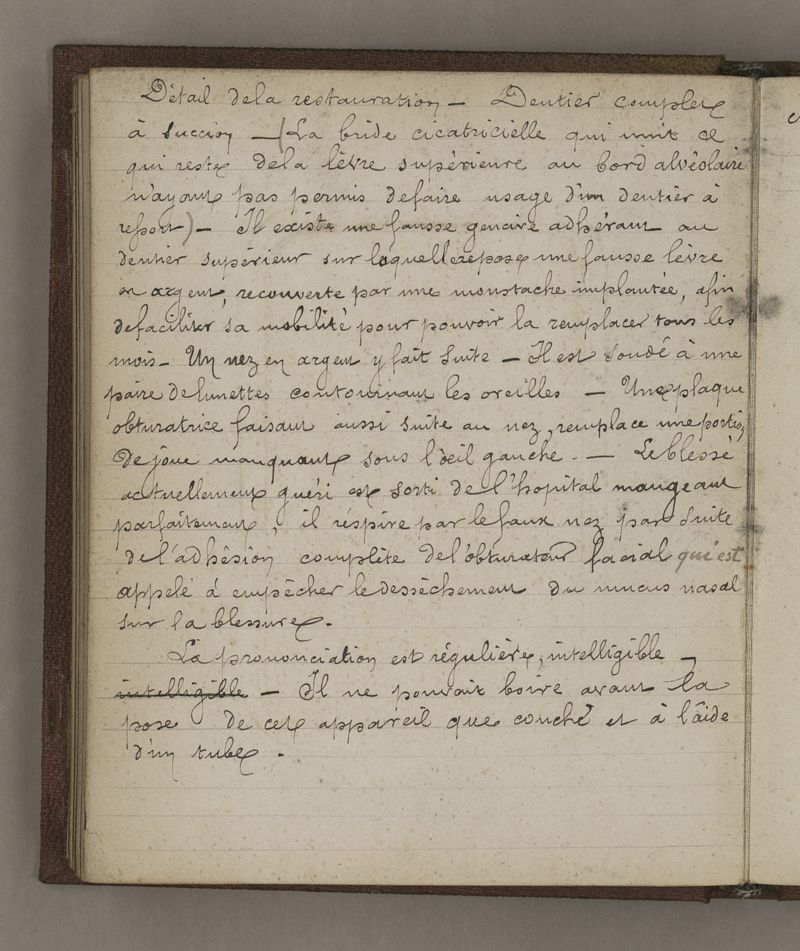 Détail de la restauration — Dentier complet
à succion — (La bride cicatricielle qui unit ce
qui reste de la lèvre supérieure au bord alvéolaire
n'ayant pas permis de faire usage d'un dentier à
ressort) — Il existe une fausse gencive adhérant au
dentier supérieur sur laquelle repose une fausse lèvre
en argent, recouverte par une moustache implantée, afin
de faciliter sa mobilité pour pouvoir la remplacer tous les
mois — Un nez en argent y fait suite — Il est soudé à une
paire de lunettes contournant les oreilles — Une plaque
obturatrice faisant aussi suite au nez, remplace une portion
de joue manquant sous l'œil gauche. — Le blessé
actuellement guéri est sorti de l'hopital mangeant
parfaitement, il réspire par le faux nez par suite
de l'adhésion complète de l'obturateur facial qui est
appelé à empêcher le dessèchement du mucus nasal
sur la blessure.
La prononciation est régulière, intelligible —
intelligible — Il ne pouvait boire avant la
pose de cet appareil que couché et à l'aide
d'un tube.